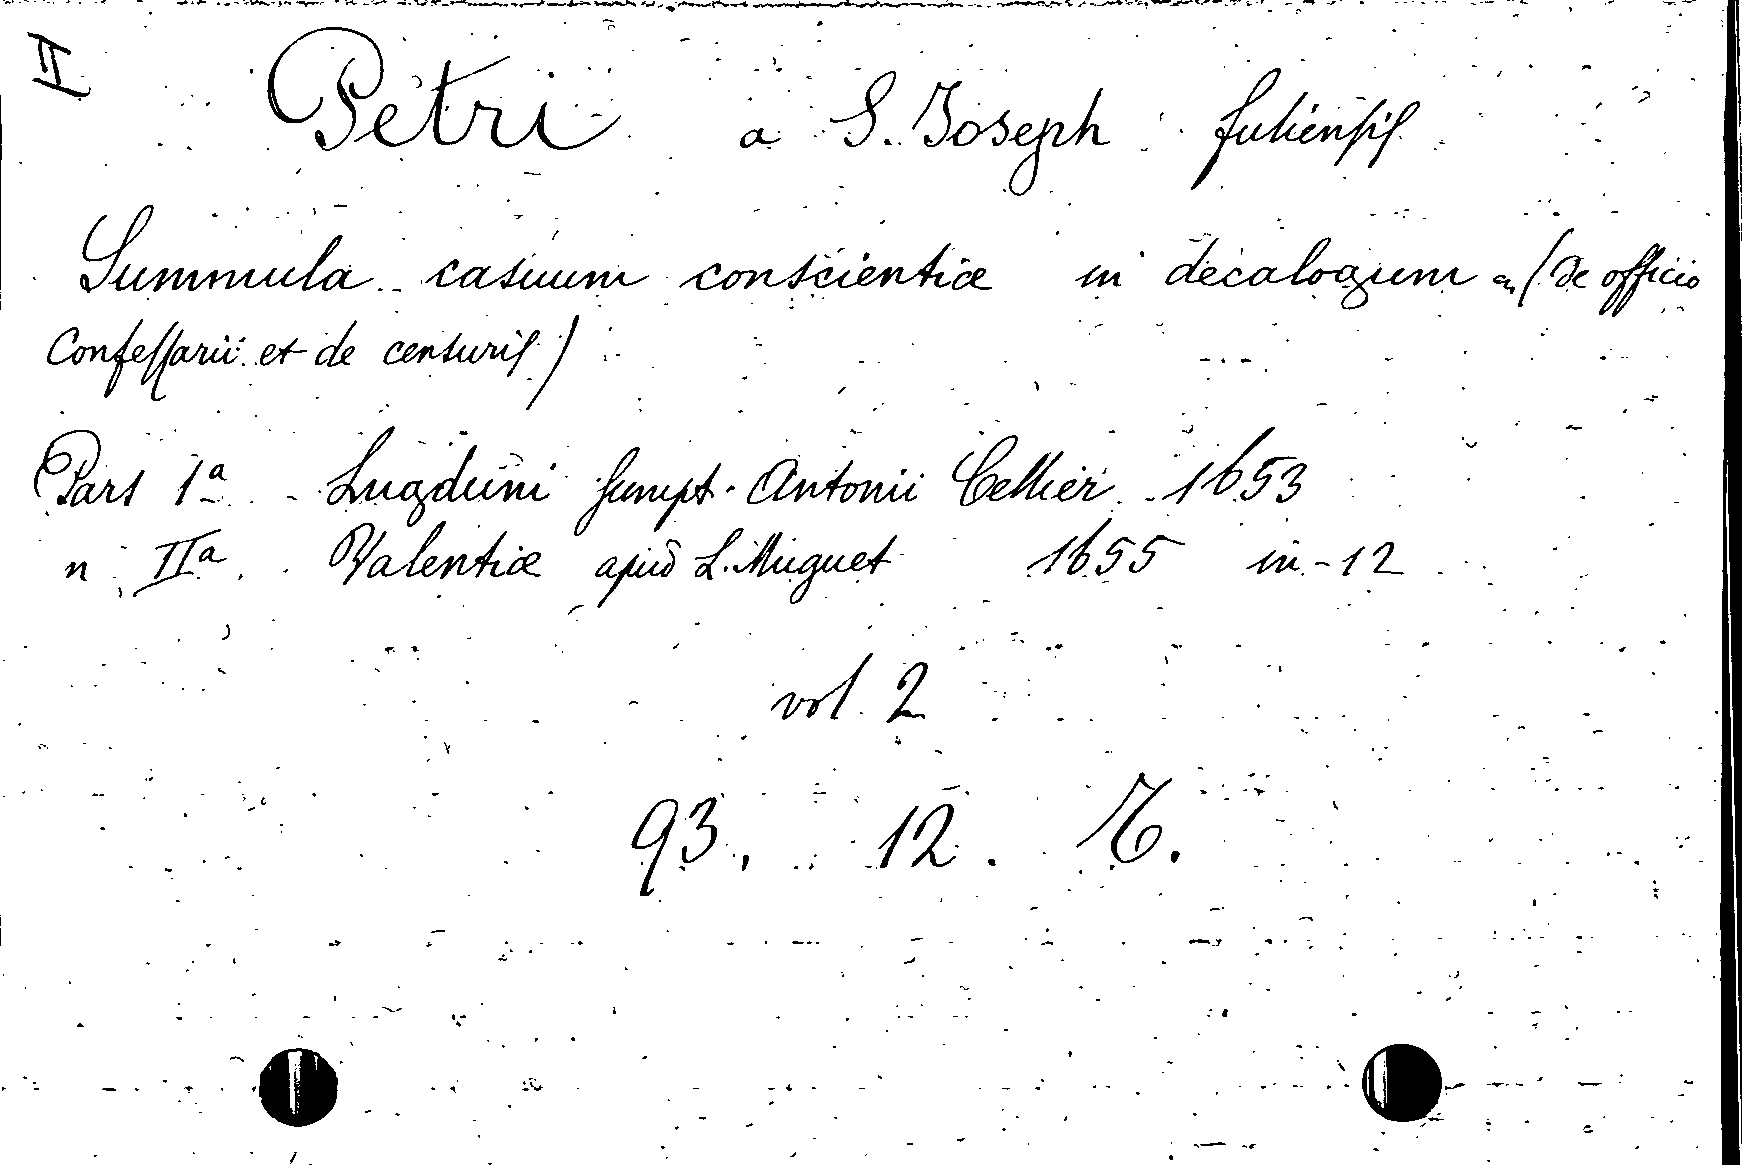 II
Petri a S. Joseph fuliensis
Summula casuum conscientiæ in decalogum (De officio
Confessarii et de censuris)
Pars 1ª Lugduni sumpt. Antonii Cellier 1653
n IIª Valentiæ apud L. Muguet 1655 in-12
vol. 2
93. 12.